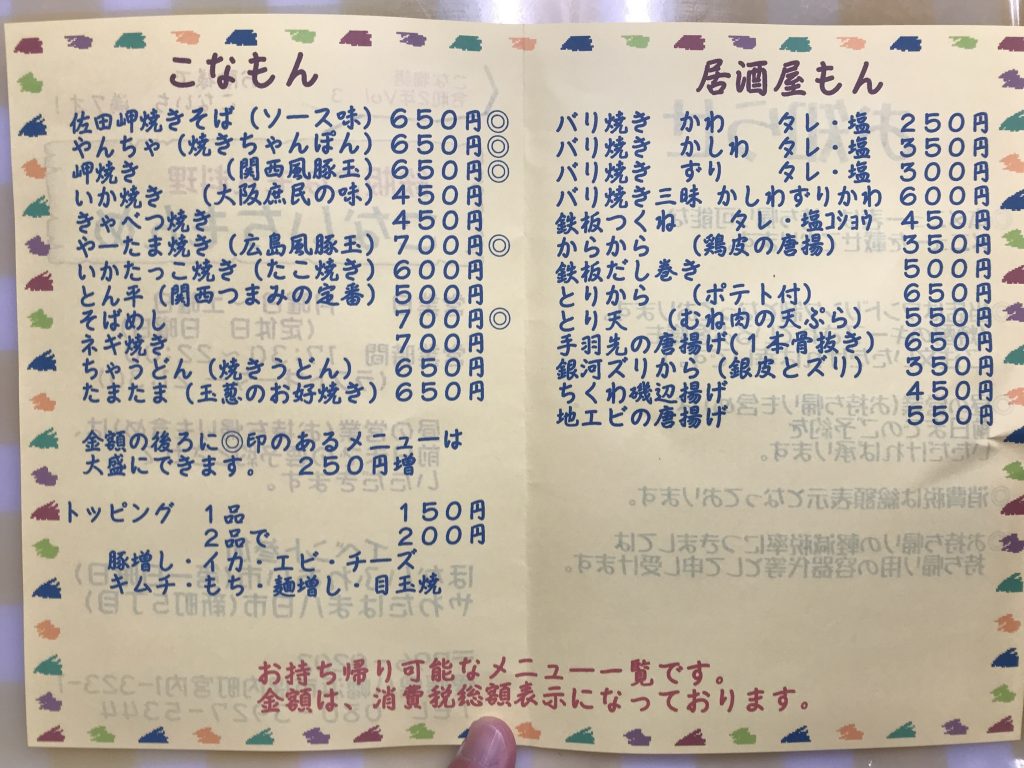 こなもん
佐田岬焼きそば（ソース味）650円◎
やんちゃ（焼きちゃんぽん）650円◎
岬焼き（関西風豚玉）650円◎
いか焼き（大阪庶民の味）450円
きゃべつ焼き 450円
やーたま焼き（広島風豚玉）700円◎
いかたっこ焼き（たこ焼き）600円
とん平（関西つまみの定番）500円
そばめし 700円◎
ネギ焼き 700円
ちゃうどん（焼きうどん）650円
たまたま（玉葱のお好焼き）650円
金額の後ろに◎印のあるメニューは
大盛にできます。 250円増
トッピング 1品 150円
2品で 200円
豚増し・イカ・エビ・チーズ
キムチ・もち・麺増し・目玉焼
居酒屋もん
バリ焼き かわ タレ・塩 250円
バリ焼き かしわ タレ・塩 350円
バリ焼き ずり タレ・塩 300円
バリ焼き三昧 かしわずりかわ 600円
鉄板つくね タレ・塩ｺｼｮｳ 450円
からから（鶏皮の唐揚）350円
鉄板だし巻き 500円
とりから（ポテト付）650円
とり天（むね肉の天ぷら）550円
手羽先の唐揚げ（1本骨抜き）650円
銀河ズリから（銀皮とズリ）350円
ちくわ磯辺揚げ 450円
地エビの唐揚げ 550円
お持ち帰り可能なメニュー一覧です。
金額は、消費税総額表示になっております。